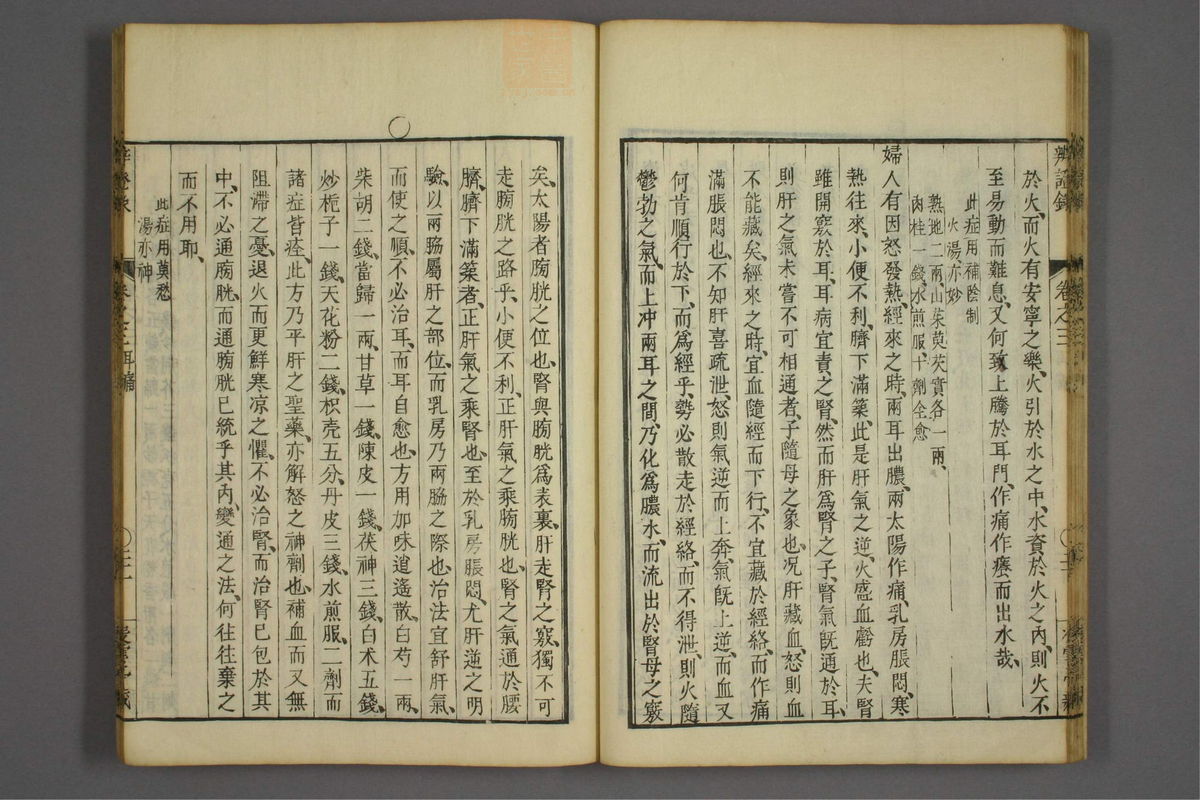 於火、而火有安寧之樂、火引於水之中、水資於火之內、則火不
至易動而難息、又何致上騰於耳門、作痛作癢而出水哉、
此症用補陰制
火湯亦妙
熟地二兩、山茱萸芡實各一兩、
肉桂一錢、水煎服十劑全愈
婦人有因怒發熱、經來之時、兩耳出膿、兩太陽作痛、乳房脹悶、寒
熱往來、小便不利、臍下滿築、此是肝氣之逆、火盛血虧也、夫腎
雖開竅於耳、耳病宜責之腎、然而肝爲腎之子、腎氣旣通於耳、
則肝之氣未嘗不可相通者、子隨母之象也、况肝藏血、怒則血
不能藏矣、經來之時、宜血隨經而下行、不宜藏於經絡、而作痛
滿脹悶也、不知肝喜疏泄、怒則氣逆而上奔、氣旣上逆、而血又
何肯順行於下、而爲經乎、勢必散走於經絡、而不得泄、則火隨
鬱勃之氣、而上冲兩耳之間、乃化爲膿水、而流出於腎母之竅
矣、太陽者膀胱之位也、腎與膀胱爲表裏、肝走腎之竅、獨不可
走膀胱之路乎、小便不利、正肝氣之乘膀胱也、腎之氣通於腰
臍、臍下滿築者、正肝氣之乘腎也、至於乳房脹悶、尤肝逆之明
驗、以兩脇屬肝之部位、而乳房乃兩脇之際也、治法宜舒肝氣、
而使之順、不必治耳、而耳自愈也、方用加味逍遙散、白芍一兩、
柴胡二錢、當歸一兩、甘草一錢、陳皮一錢、茯神三錢、白术五錢、
炒梔子一錢、天花粉二錢、枳壳五分、丹皮三錢、水煎服、二劑而
諸症皆痊、此方乃平肝之聖藥、亦解怒之神劑也、補血而又無
阻滯之憂、退火而更鮮寒凉之懼、不必治腎、而治腎已包於其
中、不必通膀胱、而通膀胱已統乎其內、變通之法、何往往棄之
而不用耶、
此症用莫愁
湯亦神